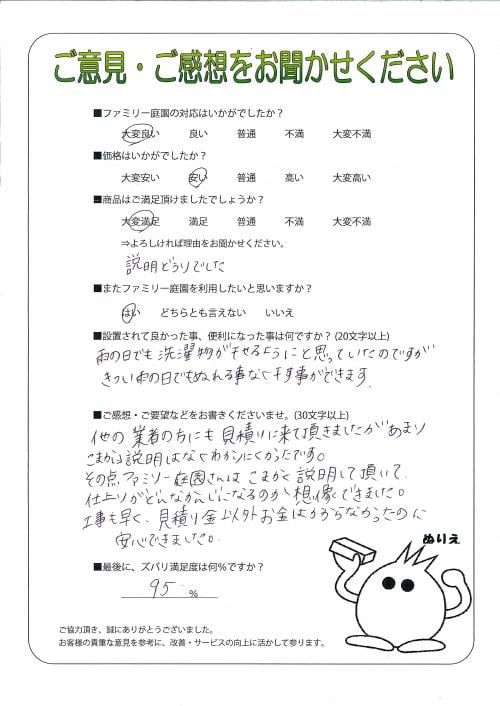 ご意見・ご感想をお聞かせください
■ファミリー庭園の対応はいかがでしたか?
大変良い 良い 普通 不満 大変不満
■価格はいかがでしたか?
大変安い 安い 普通 高い 大変高い
■商品はご満足頂けましたでしょうか?
大変満足 満足 普通 不満 大変不満
⇒よろしければ理由をお聞かせください。
説明どうりでした
■またファミリー庭園を利用したいと思いますか?
はい どちらとも言えない いいえ
■設置されて良かった事、便利になった事は何ですか?(20文字以上)
雨の日でも洗濯物が干せるようにと思っていたのですが
きつい雨の日でもぬれる事なく干す事ができます。
■ご感想・ご要望などをお書きくださいませ。(30文字以上)
他の業者の方にも見積りに来て頂きましたがあまり
こまかい説明はなくわかりにくかったです。
その点ファミリー庭園さんはこまかく説明して頂いて、
仕上りがどんなかんじになるのか想像できました。
工事も早く、見積り金以外お金はかからなかったので
安心できました。
ぬりえ
■最後に、ズバリ満足度は何%ですか?
95 %
ご協力頂き、誠にありがとうございました。
お客様の貴重な意見を参考に、改善・サービスの向上に活かして参ります。